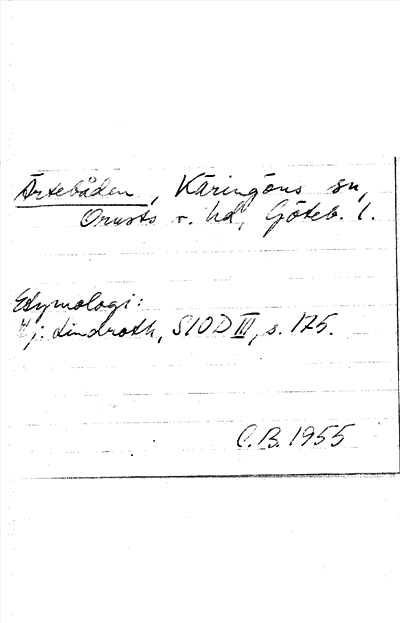 Ärtebåden, Käringöns sn,
Orusts v. hd, Göteb. l.
Etymologi:
Hj. Lindroth, SIOD III, s. 175.
C.B. 1955